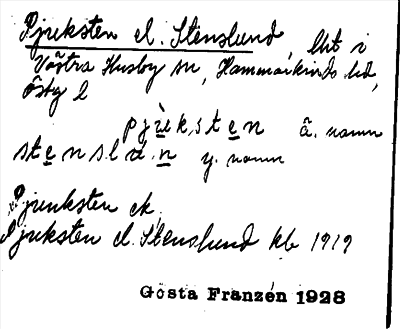 Pjuksten el. Stenslund, lht i
Västra Husby sn, Hammarkinds hd,
Östg l
pjùksten ä. namn
stenslun y. namn
Pjunksten ek
Pjuksten el. Stenslund kb 1919
Gösta Franzén 1928